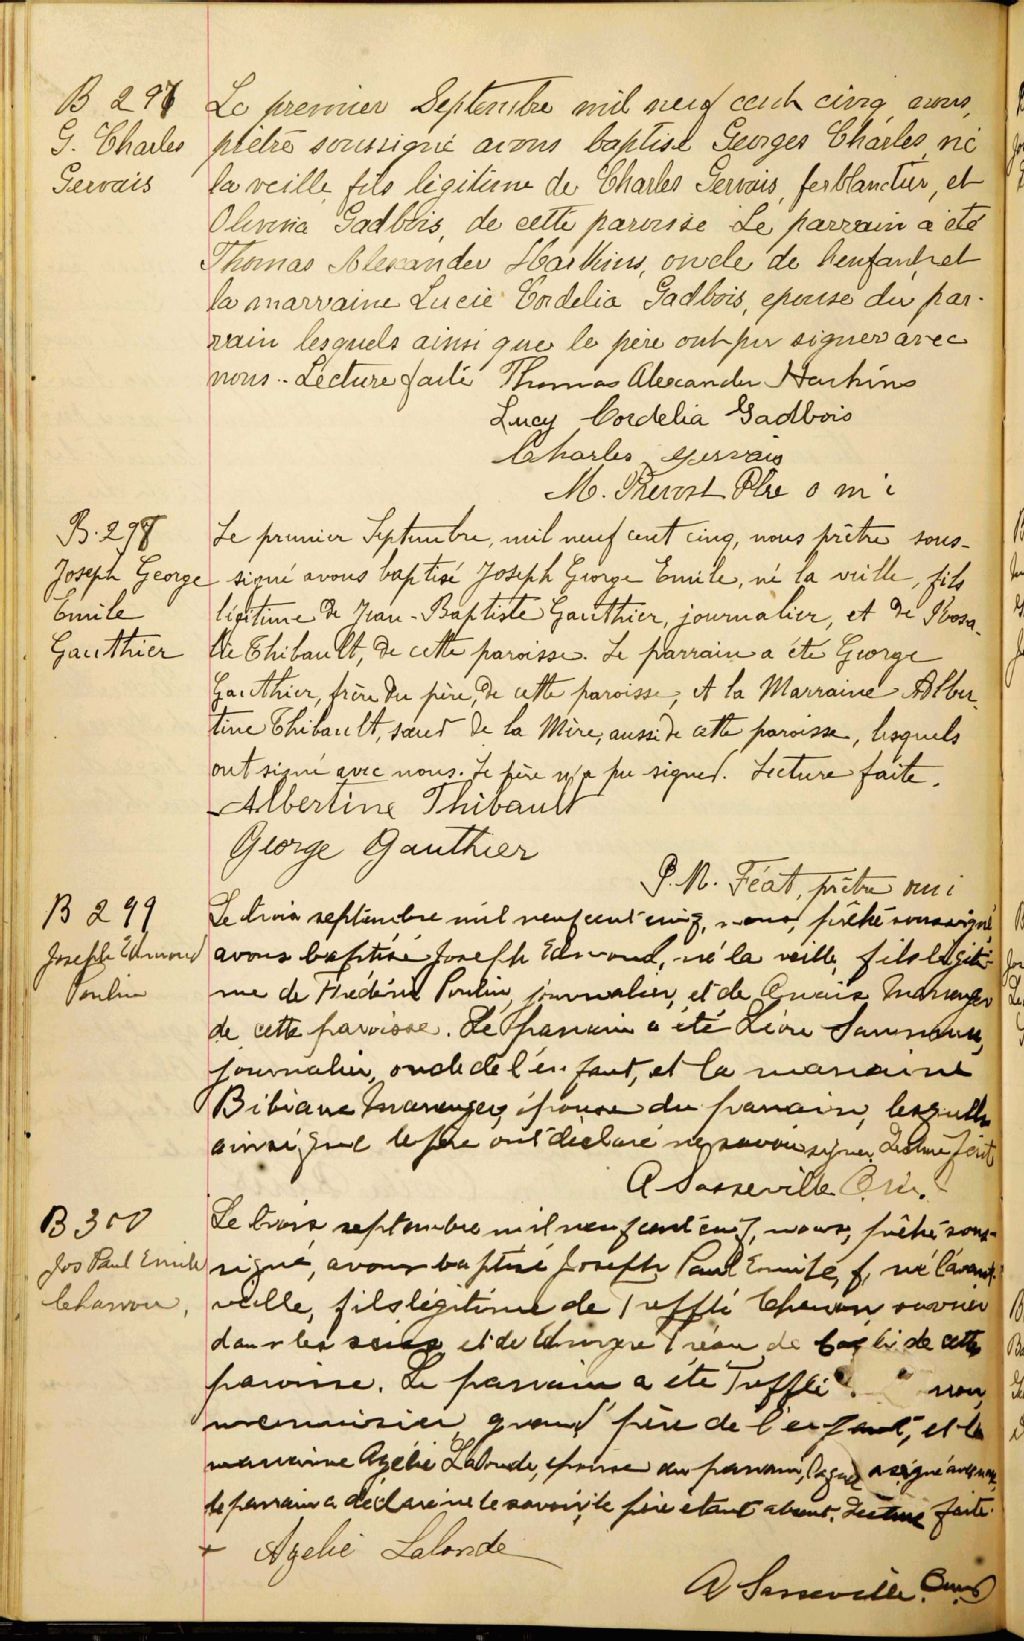 B 297
G. Charles
Gervais
Le premier Septembre mil neuf cent cinq nous,
prêtre soussigné avons baptisé Georges Charles, né
la veille, fils légitime de Charles Gervais, ferblantier, et
Olivina Gadbois, de cette paroisse Le parrain a été
Thomas Alexander Harkins, oncle de l'enfant, et
la marraine Lucie Cordelia Gadbois, epouse du par-
rain lesquels ainsi que le père ont pu signer avec
nous.. Lecture faite Thomas Alexander Harkins
Lucy Cordelia Gadbois
Charles gervais
M. Prevost Ptre o m i
B. 298
Joseph George
Emile
Gauthier
Le premier Septembre, mil neuf cent cinq, nous prêtre sous-
signé avons baptisé Joseph George Emile, né la veille, fils
légitime de Jean-Baptiste Gauthier, journalier, et de Rosa-
lie Thibault, de cette paroisse. Le parrain a été George
Gauthier, frère du père, de cette paroisse, et la Marraine Alber-
tine Thibault, sœur de la Mère, aussi de cette paroisse, lesquels
ont signé avec nous. Le père n'a pu signer. Lecture faite.
Albertine Thibault
George Gauthier
P. M. Féat, prêtre omi
B 299
Joseph Edmond
Poulin
Le trois septembre mil neuf cent cinq, nous, prêtre soussigné,
avons baptisé Joseph Edmond, né la veille, fils légiti-
me de Frédéric Poulin, journalier, et de
de cette paroisse. Le parrain a été
journalier, oncle de l'enfant, et la marraine
Bibiane épouse du parrain, lesquels
ainsi que le père ont déclaré ne savoir signer. Lecture faite
A Sasseville Omi.
B 300
Jos Paul Emile
Charron,
Le trois septembre mil neuf cent cinq, nous, prêtre sous-
signé, avons baptisé Joseph Paul Emile, né l'avant-
veille, fils légitime de Trefflé Charron ouvrier
dans les et de de cette
paroisse. Le parrain a été Trefflé
menuisier, grand père de l'enfant, et la
marraine Azélie Lalonde, épouse du parrain, a signé avec nous,
le parrain a déclaré ne le savoir, le père étant absent. Lecture faite.
+ Azelie Lalonde
A Sasseville Omi